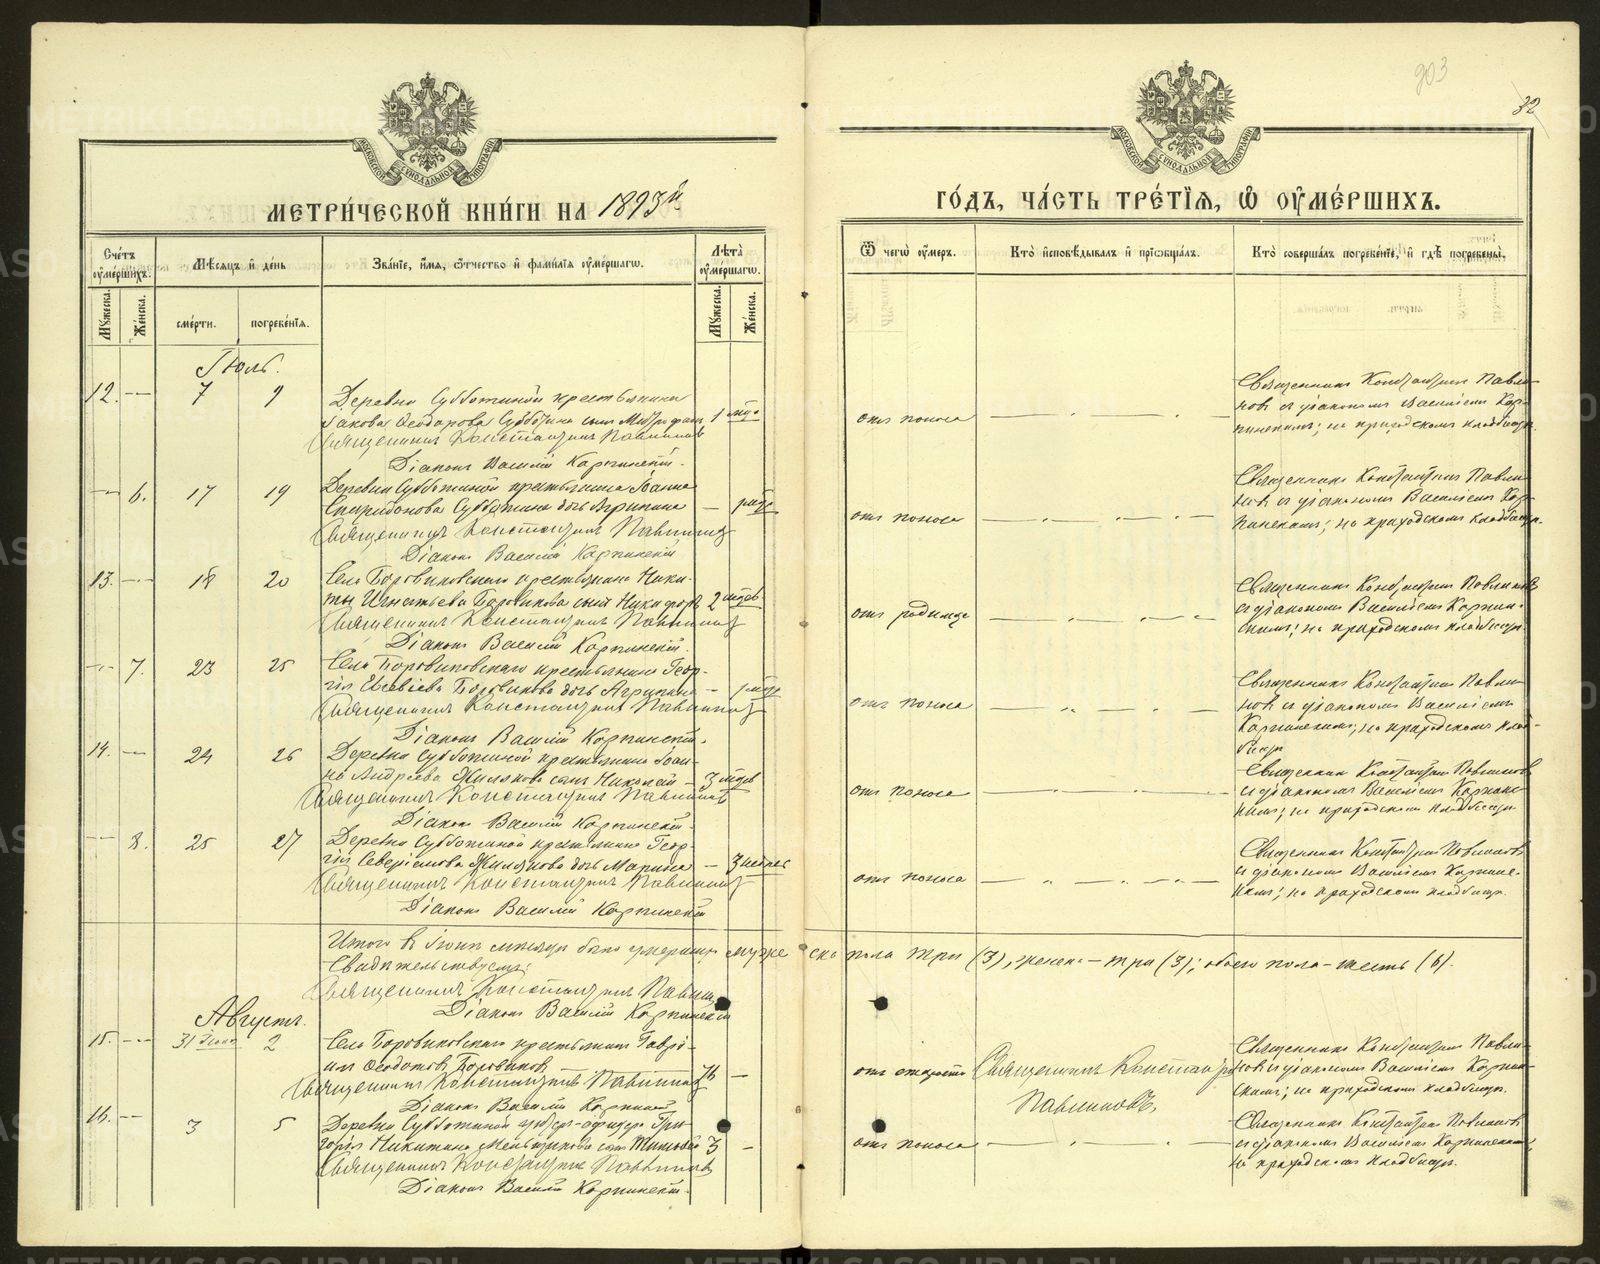 903
32
МЕТРИ́ЧЕСКОЙ КНИ́ГИ НА 1893й
ГО́ДЪ, ЧА́СТЬ ТРЕ́ТЇЯ, Ѡ҆ ОУ҆МЕ́РШИХЪ.
МОСКОВСКОЙ СѴНОДАЛЬНОЙ ТИПОГРАФІИ
МОСКОВСКОЙ СѴНОДАЛЬНОЙ ТИПОГРАФІИ
Сче́тъ оу҆ме́ршихъ.
Мѣ́сяцъ и҆ де́нь
Зва́нїе, и҆́мя, ѻ҆́тчество и҆ фами́лїя оу҆ме́ршагѡ.
Лѣ́та оу҆ме́ршагѡ.
Мꙋ́жеска.
Же́нска.
сме́рти.
погребе́нїя.
Мꙋ́жеска.
Же́нска.
Ѿ чегѡ̀ оу҆́меръ.
Кто̀ и҆сповѣ́дывалъ и҆ прїѡбща́лъ.
Кто̀ соверша́лъ погребе́нїе, и҆ гдѣ̀ погребены̀.
Іюль.
12. — 7 9
Деревни Субботиной крестьянина
Іакова Ѳеодорова Субботина сынъ Митрофанъ 1 мѣс
Священникъ Константинъ Павлиновъ
Діаконъ Василій Карпинскій.
отъ поноса
Священникъ Константинъ Павли-
новъ съ діакономъ Василіемъ Кар-
пинскимъ; на приходскомъ кладбищѣ.
— 6. 17 19
Деревни Субботиной крестьянина Іоанна
Спиридонова Субботина дочь Агрипина — 1 мѣс
Священникъ Константинъ Павлиновъ
Діаконъ Василій Карпинскій
отъ поноса
Священникъ Константинъ Павли-
новъ съ діакономъ Василіемъ Кар-
пинскимъ; на приходскомъ кладбищѣ.
13. — 18 20
Села Боровиковскаго крестьянина Ники-
ты Игнатьева Боровикова сынъ Никифоръ 2 мѣсяц
Священникъ Константинъ Павлиновъ
Діаконъ Василій Карпинскій.
отъ родимца
Священникъ Константинъ Павлиновъ
съ діакономъ Василіемъ Карпин-
скимъ; на приходскомъ кладбищѣ.
— 7. 23 25
Села Боровиковскаго крестьянина Геор-
гія Евсевіева Боровикова дочь Агрипина — 1 мѣс
Священникъ Константинъ Павлиновъ
Діаконъ Василій Карпинскій.
отъ поноса
Священникъ Константинъ Павли-
новъ съ діакономъ Василіемъ
Карпинскимъ; на приходскомъ клад-
бищѣ
14. — 24 26
Деревни Субботиной крестьянина Іоан-
на Андреева Жилякова сынъ Николай — 3 мѣсяц
Священникъ Константинъ Павлиновъ
Діаконъ Василій Карпинскій.
отъ поноса
Священникъ Константинъ Павлиновъ
съ діакономъ Василіемъ Карпинс-
кимъ; на приходскомъ кладбищѣ
— 8. 25 27
Деревни Субботиной крестьянина Геор-
гія Северіанова Жилякова дочь Марина — 3 недѣл
Священникъ Константинъ Павлиновъ
Діаконъ Василій Карпинскій
отъ поноса
Священникъ Константинъ Павлиновъ
съ діакономъ Василіемъ Карпинс-
кимъ; на приходскомъ кладбищѣ.
Итого въ Іюлѣ мѣсяцѣ было умершихъ мужескa пола три (3), женска — три (3); обоего пола — шесть (6).
Свидѣтельствуютъ:
Священникъ Константинъ Павлиновъ
Діаконъ Василій Карпинскій
Августъ.
15. — 31 Іюля 2
Села Боровиковскаго крестьянинъ Гаврі-
илъ Ѳеодотовъ Боровиковъ 76 —
Священникъ Константинъ Павлиновъ
Діаконъ Василій Карпинскій
отъ старости
Священникъ Константинъ
Павлиновъ.
Священникъ Константинъ Павли-
новъ съ діакономъ Василіемъ Карпин-
скимъ; на приходскомъ кладбищѣ.
16. — 3 5
Деревни Субботиной унтеръ-офицера Гри-
горія Никитина сынъ Тимофей 3 —
Священникъ Константинъ Павлиновъ
Діаконъ Василій Карпинскій.
отъ поноса
Священникъ Константинъ Павлиновъ
съ діакономъ Василіемъ Карпинскимъ;
на приходскомъ кладбищѣ.
METRIKI.GASO-URAL.RU